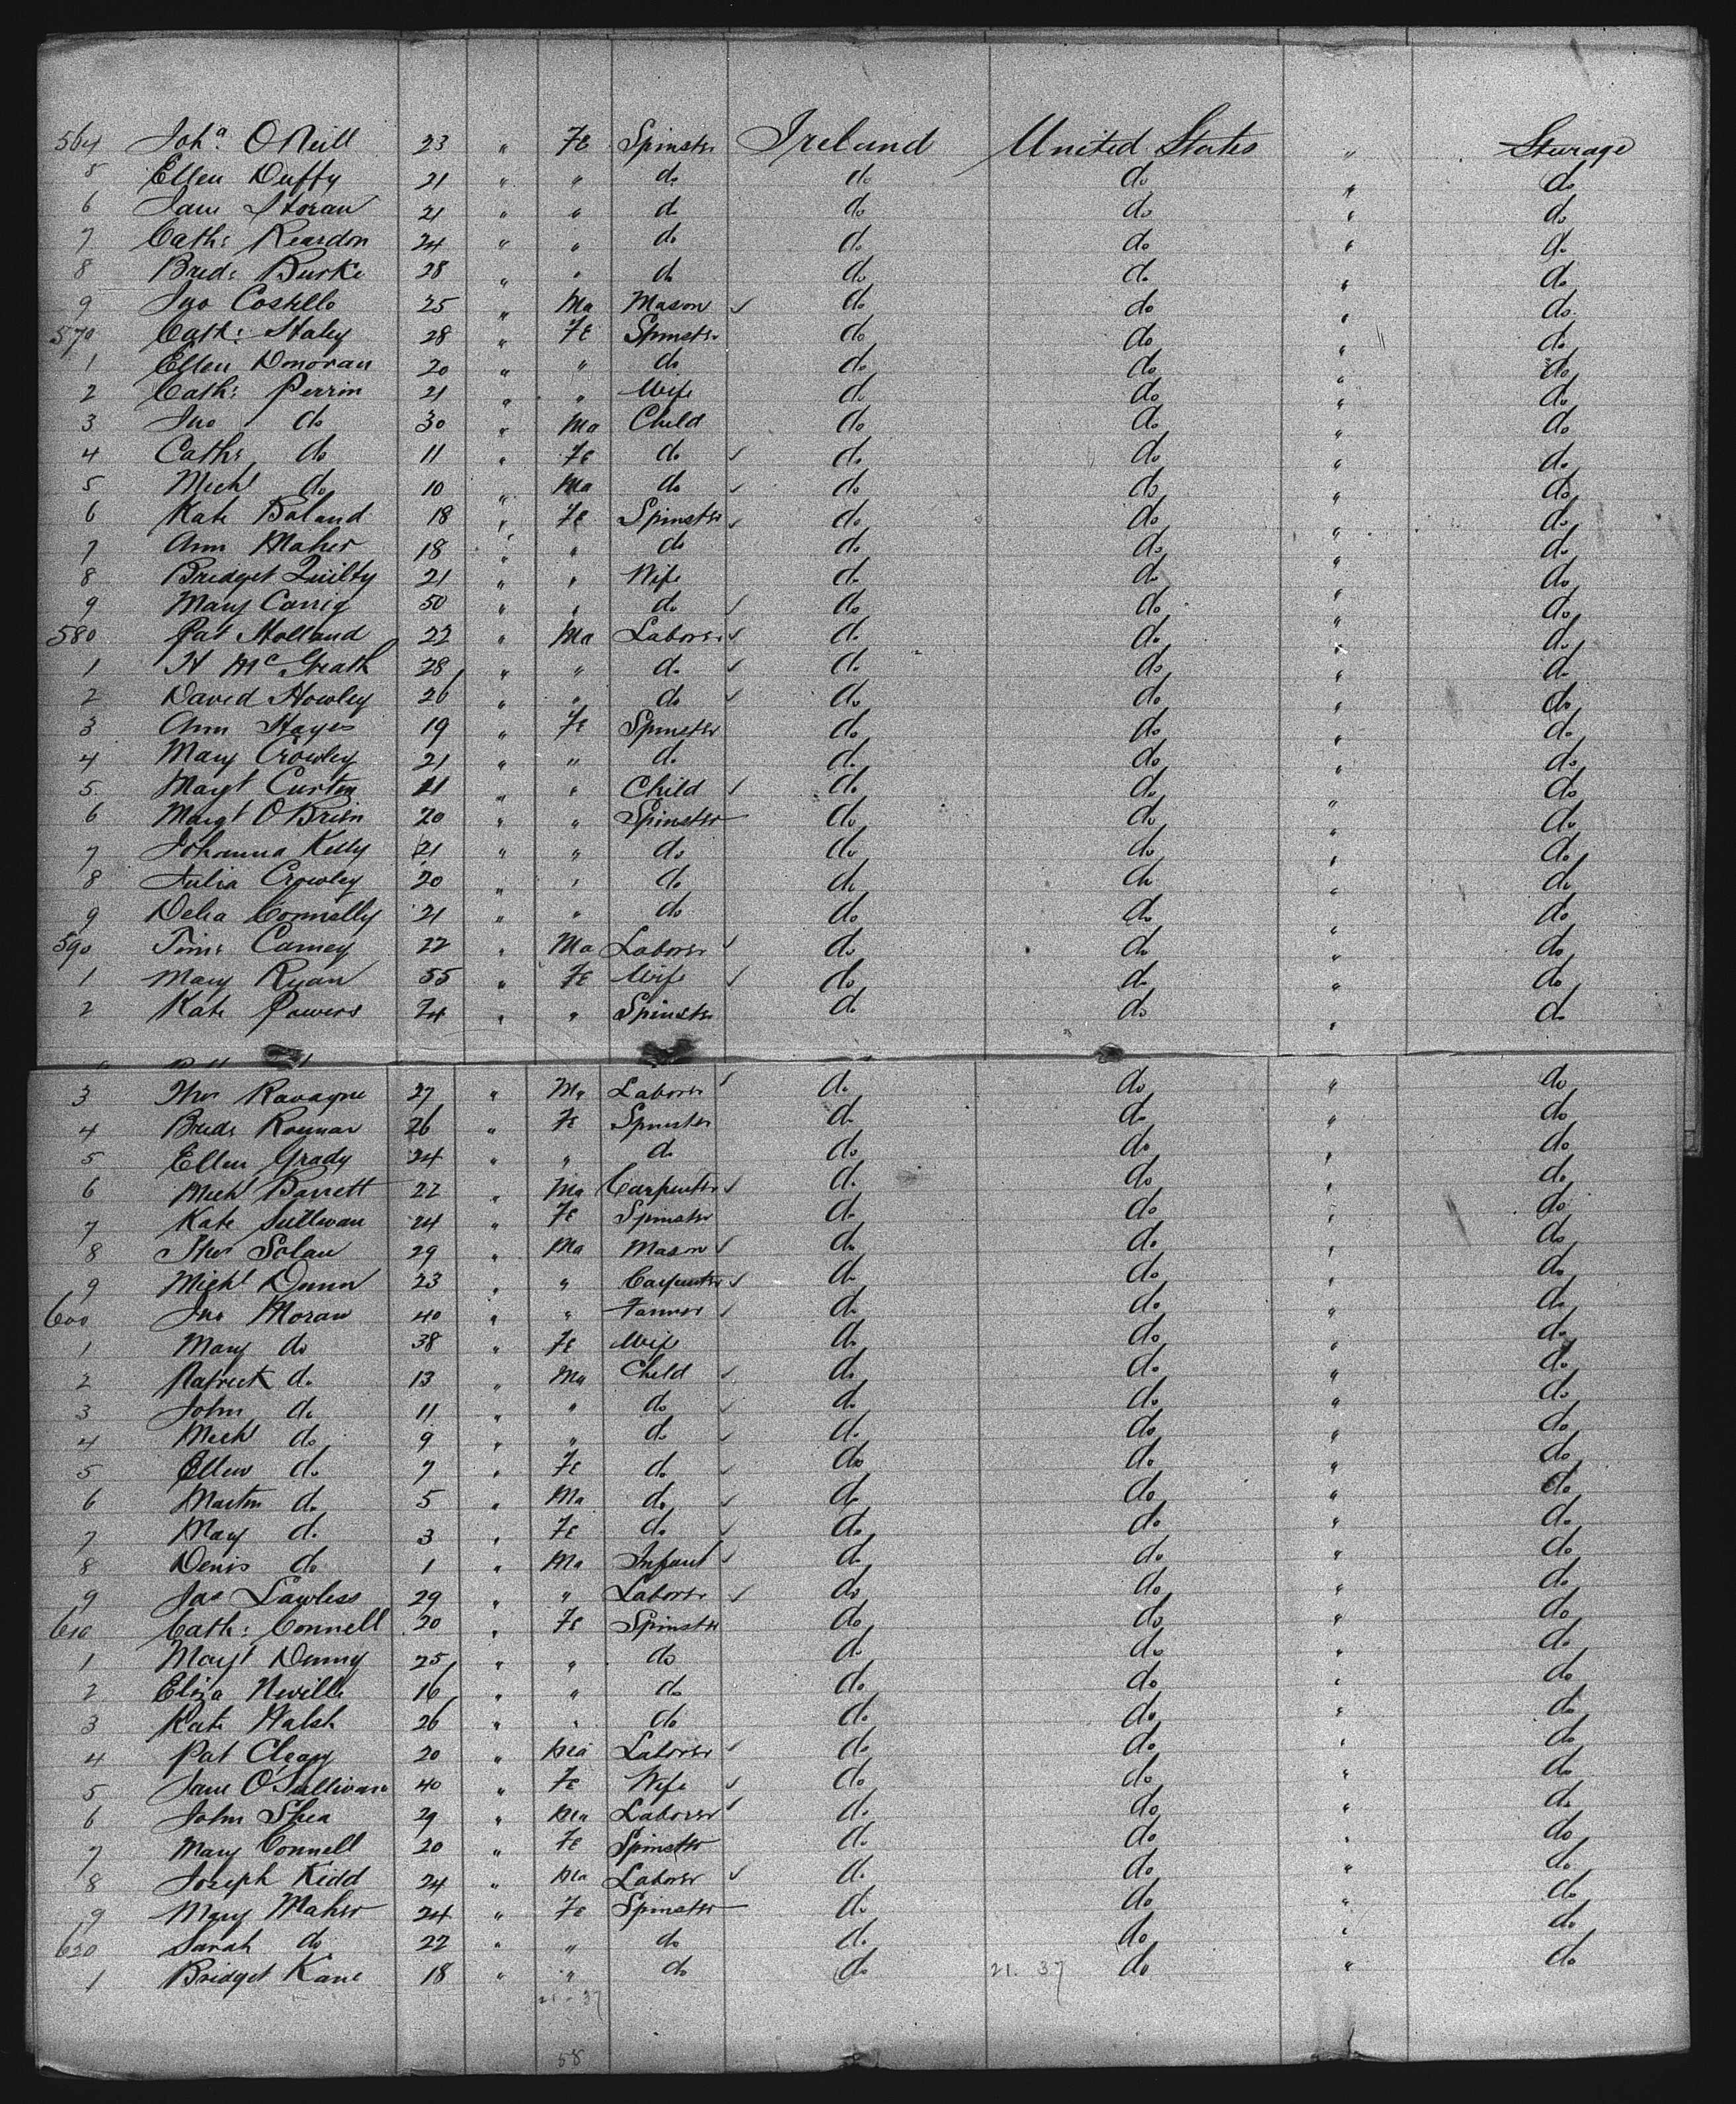 564 Joha. O Neill 23 " Fe Spinster Ireland United States " Sturage
5 Ellen Duffy 21 " " do do do " do
6 Jane Horan 21 " " do do do " do
7 Cath: Reardon 24 " " do do do " do
8 Brid: Burke 28 " " do do do " do
9 Jno Costello 25 " Ma Mason ✓ do do " do
570 Cath: Haley 28 " Fe Spinster do do " do
1 Ellen Donovan 20 " " do do do " do
2 Cath: Perrin 21 " " Wife do do " do
3 Jno do 30 " Ma Child do do " do
4 Cath: do 11 " Fe do ✓ do do " do
5 Michl do 10 " Ma do ✓ do do " do
6 Kate Boland 18 " Fe Spinster ✓ do do " do
7 Ann Maher 18 " " do do do " do
8 Bridget Quilty 21 " " Wife do do " do
9 Mary Carrig 50 " " do ✓ do do " do
580 Pat Holland 22 " Ma Laborer ✓ do do " do
1 H McGrath 28 " " do ✓ do do " do
2 David Howley 26 " " do ✓ do do " do
3 Ann Hayes 19 " Fe Spinster do do " do
4 Mary Crowley 21 " " do do do " do
5 Margt Curten 11 " " Child ✓ do do " do
6 Margt O Brien 20 " " Spinster do do " do
7 Johanna Kelly 21 " " do do do " do
8 Julia Crowley 20 " " do do do " do
9 Delia Connelly 21 " " do do do " do
590 Tim: Carney 22 " Ma Laborer ✓ do do " do
1 Mary Ryan 55 " Fe Wife ✓ do do " do
2 Kate Powers 24 " " Spinster do do " do
3 Thos Ravagne 27 " Ma Laborer ✓ do do " do
4 Brid: Rounan 26 " Fe Spinster do do " do
5 Ellen Grady 24 " " do do do " do
6 Michl Barrett 22 " Ma Carpenter ✓ do do " do
7 Kate Sullivan 24 " Fe Spinster do do " do
8 Thos Solan 29 " Ma Mason ✓ do do " do
9 Michl Dunn 23 " " Carpenter ✓ do do " do
600 Jno Moran 40 " " Farmer ✓ do do " do
1 Mary do 38 " Fe Wife do do " do
2 Patrick do 13 " Ma Child ✓ do do " do
3 John do 11 " " do ✓ do do " do
4 Michl do 9 " " do ✓ do do " do
5 Ellen do 7 " Fe do ✓ do do " do
6 Martin do 5 " Ma do ✓ do do " do
7 Mary do 3 " Fe do ✓ do do " do
8 Denis do 1 " Ma Infant ✓ do do " do
9 Jas Lawless 29 " " Laborer ✓ do do " do
610 Cath: Connell 20 " Fe Spinster do do " do
1 Margt Denny 25 " " do do do " do
2 Eliza Neville 16 " " do do do " do
3 Kate Walsh 26 " " do do do " do
4 Pat Cleary 20 " Ma Laborer ✓ do do " do
5 Jane O'Sullivan 40 " Fe Wife ✓ do do " do
6 John Shea 29 " Ma Laborer ✓ do do " do
7 Mary Connell 20 " Fe Spinster do do " do
8 Joseph Kidd 24 " Ma Laborer ✓ do do " do
9 Mary Maher 24 " Fe Spinster do do " do
620 Sarah do 22 " " do do do " do
1 Bridget Kane 18 " " do do 21. 37 do " do
21-37
58